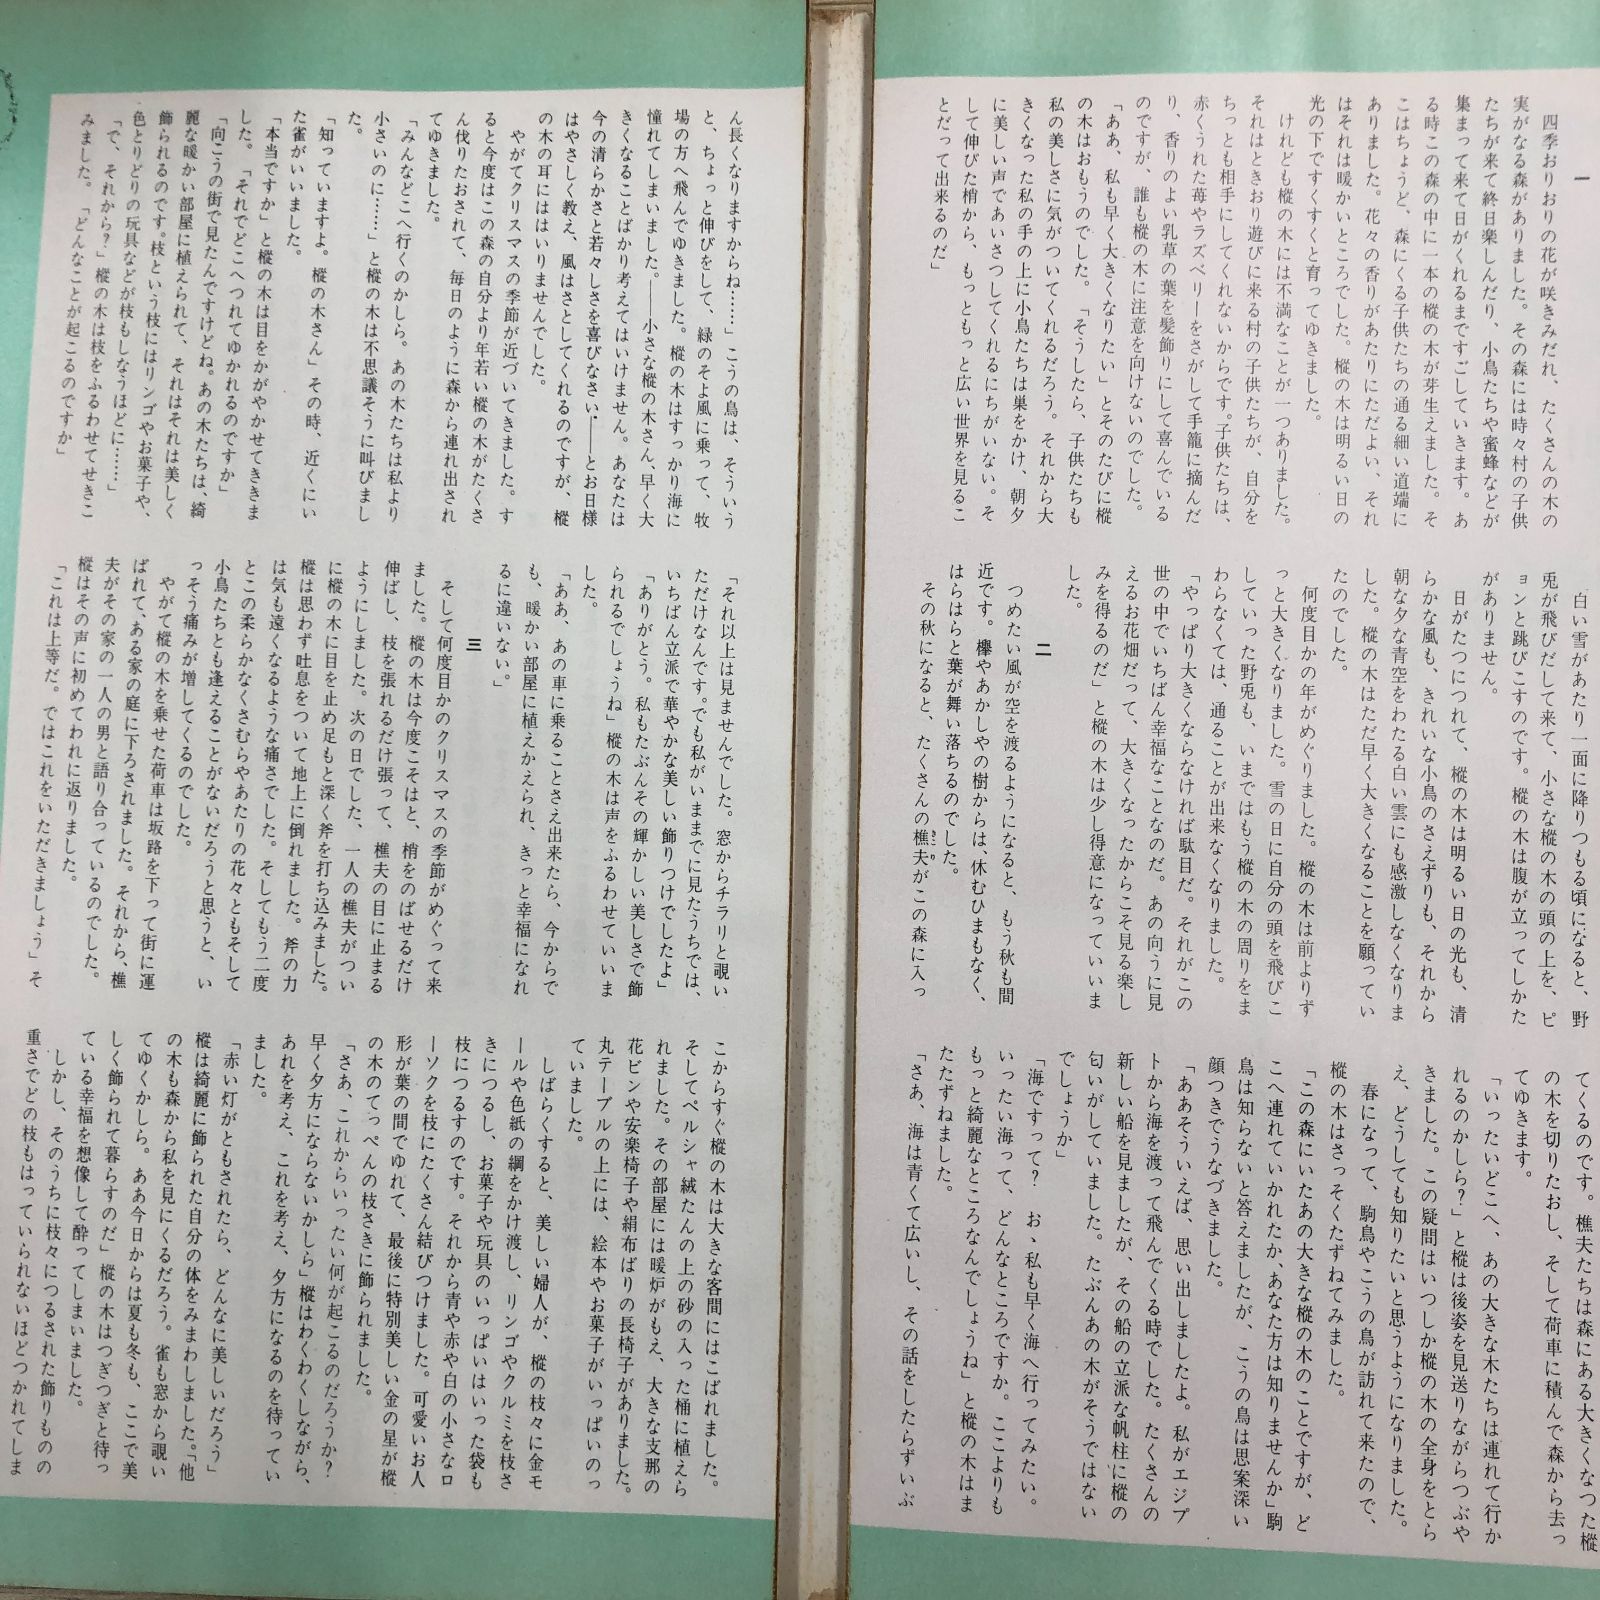 一
四季おりおりの花が咲きみだれ、たくさんの木の
実がなる森がありました。その森には時々村の子供
たちが来て終日楽しんだり、小鳥たちや蜜蜂などが
集まって来て日がくれるまですごしていきます。あ
る時この森の中に一本の樅の木が芽生えました。そ
こはちょうど、森にくる子供たちの通る細い道端に
ありました。花々の香りがあたりにただよい、それ
はそれは暖かいところでした。樅の木は明るい日の
光の下ですくすくと育ってゆきました。
けれども樅の木には不満なことが一つありました。
それはときおり遊びに来る村の子供たちが、自分を
ちっとも相手にしてくれないからです。子供たちは、
赤くうれた苺やラズベリーをさがして手籠に摘んだ
り、香りのよい乳草の葉を髪飾りにして喜んでいる
のですが、誰も樅の木に注意を向けないのでした。
「ああ、私も早く大きくなりたい」とそのたびに樅
の木はおもうのでした。「そうしたら、子供たちも
私の美しさに気がついてくれるだろう。それから大
きくなった私の手の上に小鳥たちは巣をかけ、朝夕
に美しい声であいさつしてくれるにちがいない。そ
して伸びた梢から、もっともっと広い世界を見るこ
とだって出来るのだ」
白い雪があたり一面に降りつもる頃になると、野
兎が飛びだして来て、小さな樅の木の頭の上を、ピ
ョンと跳びこすのです。樅の木は腹が立ってしかた
がありません。
日がたつにつれて、樅の木は明るい日の光も、清
らかな風も、きれいな小鳥のさえずりも、それから
朝な夕な青空をわたる白い雲にも感激しなくなりま
した。樅の木はただ早く大きくなることを願ってい
たのでした。
何度目かの年がめぐりました。樅の木は前よりず
っと大きくなりました。雪の日に自分の頭を飛びこ
していった野兎も、いまではもう樅の木の周りをま
わらなくては、通ることが出来なくなりました。
「やっぱり大きくならなければ駄目だ。それがこの
世の中でいちばん幸福なことなのだ。あの向うに見
えるお花畑だって、大きくなったからこそ見る楽し
みを得るのだ」と樅の木は少し得意になっていいま
した。
二
つめたい風が空を渡るようになると、もう秋も間
近です。欅やあかしやの樹からは、休むひまもなく、
はらはらと葉が舞い落ちるのでした。
その秋になると、たくさんの樵夫がこの森に入っ
てくるのです。樵夫たちは森にある大きくなつた樅
の木を切りたおし、そして荷車に積んで森から去っ
てゆきます。
「いったいどこへ、あの大きな木たちは連れて行か
れるのかしら?」と樅は後姿を見送りながらつぶや
きました。この疑問はいつしか樅の木の全身をとら
え、どうしても知りたいと思うようになりました。
春になって、駒鳥やこうの鳥が訪れて来たので、
樅の木はさっそくたずねてみました。
「この森にいたあの大きな樅の木のことですが、ど
こへ連れていかれたか、あなた方は知りませんか」駒
鳥は知らないと答えましたが、こうの鳥は思案深い
顔つきでうなづきました。
「ああそういえば、思い出しましたよ。私がエジプ
トから海を渡って飛んでくる時でした。たくさんの
新しい船を見ましたが、その船の立派な帆柱に樅の
匂いがしていました。たぶんあの木がそうではない
でしょうか」
「海ですって? お、私も早く海へ行ってみたい。
いったい海って、どんなところですか。ここよりも
もっと綺麗なところなんでしょうね」と樅の木はま
たたずねました。
「さあ、海は青くて広いし、その話をしたらずいぶ
ん長くなりますからね……」こうの鳥は、そういう
と、ちょっと伸びをして、緑のそよ風に乗って、牧
場の方へ飛んでゆきました。樅の木はすっかり海に
憧れてしまいました。――小さな樅の木さん、早く大
きくなることばかり考えてはいけません。あなたは
今の清らかさと若々しさを喜びなさい――とお日様
はやさしく教え、風はさとしてくれるのですが、樅
の木の耳にははいりませんでした。
やがてクリスマスの季節が近づいてきました。す
ると今度はこの森の自分より年若い樅の木がたくさ
ん伐りたおされて、毎日のように森から連れ出され
てゆきました。
「みんなどこへ行くのかしら。あの木たちは私より
小さいのに……」と樅の木は不思議そうに叫びまし
た。
「知っていますよ。樅の木さん」その時、近くにい
た雀がいいました。
「本当ですか」と樅の木は目をかがやかせてききま
した。「それでどこへつれてゆかれるのですか」
「向こうの街で見たんですけどね。あの木たちは、綺
麗な暖かい部屋に植えられて、それはそれは美しく
飾られるのです。枝という枝にはリンゴやお菓子や、
色とりどりの玩具などが枝もしなうほどに……」
「で、それから?」樅の木は枝をふるわせてせきこ
みました。「どんなことが起こるのですか」
「それ以上は見ませんでした。窓からチラリと覗い
ただけなんです。でも私がいままでに見たうちでは、
いちばん立派で華やかな美しい飾りつけでしたよ」
「ありがとう。私もたぶんその輝かしい美しさで飾
られるでしょうね」樅の木は声をふるわせていいま
した。
「ああ、あの車に乗ることさえ出来たら、今からで
も、暖かい部屋に植えかえられ、きっと幸福になれ
るに違いない。」
三
そして何度目かのクリスマスの季節がめぐって来
ました。樅の木は今度こそはと、梢をのばせるだけ
伸ばし、枝を張れるだけ張って、樵夫の目に止まる
ようにしました。次の日でした、一人の樵夫がつい
に樅の木に目を止め足もと深く斧を打ち込みました。
樅は思わず吐息をついて地上に倒れました。斧の力
は気も遠くなるような痛さでした。そしてもう二度
とこの柔らかなくさむらやあたりの花々ともそして
小鳥たちとも逢えることがないだろうと思うと、い
っそう痛みが増してくるのでした。
やがて樅の木を乗せた荷車は坂路を下って街に運
ばれて、ある家の庭に下ろされました。それから、樵
夫がその家の一人の男と語り合っているのでした。
樅はその声に初めてわれに返りました。
「これは上等だ。ではこれをいただきましょう」そ
こからすぐ樅の木は大きな客間にはこばれました。
そしてペルシャ絨たんの上の砂の入った桶に植えら
れました。その部屋には暖炉がもえ、大きな支那の
花ビンや安楽椅子や絹布ばりの長椅子がありました。
丸テーブルの上には、絵本やお菓子がいっぱいのっ
ていました。
しばらくすると、美しい婦人が、樅の枝々に金モ
ールや色紙の綱をかけ渡し、リンゴやクルミを枝さ
きにつるし、お菓子や玩具のいっぱいはいった袋も
枝につるすのです。それから青や赤や白の小さなロ
ーソクを枝にたくさん結びつけました。可愛いお人
形が葉の間でゆれて、最後に特別美しい金の星が樅
の木のてっぺんの枝さきに飾られました。
「さあ、これからいったい何が起こるのだろうか?
早く夕方にならないかしら」樅はわくわくしながら、
あれを考え、これを考え、夕方になるのを待ってい
ました。
「赤い灯がともされたら、どんなに美しいだろう」
樅は綺麗に飾られた自分の体をみまわしました。「他
の木も森から私を見にくるだろう。雀も窓から覗い
てゆくかしら。ああ今日からは夏も冬も、ここで美
しく飾られて暮らすのだ」樅の木はつぎつぎと待っ
ている幸福を想像して酔ってしまいました。
しかし、そのうちに枝々につるされた飾りものの
重さでどの枝もはっていられないほどつかれてしま